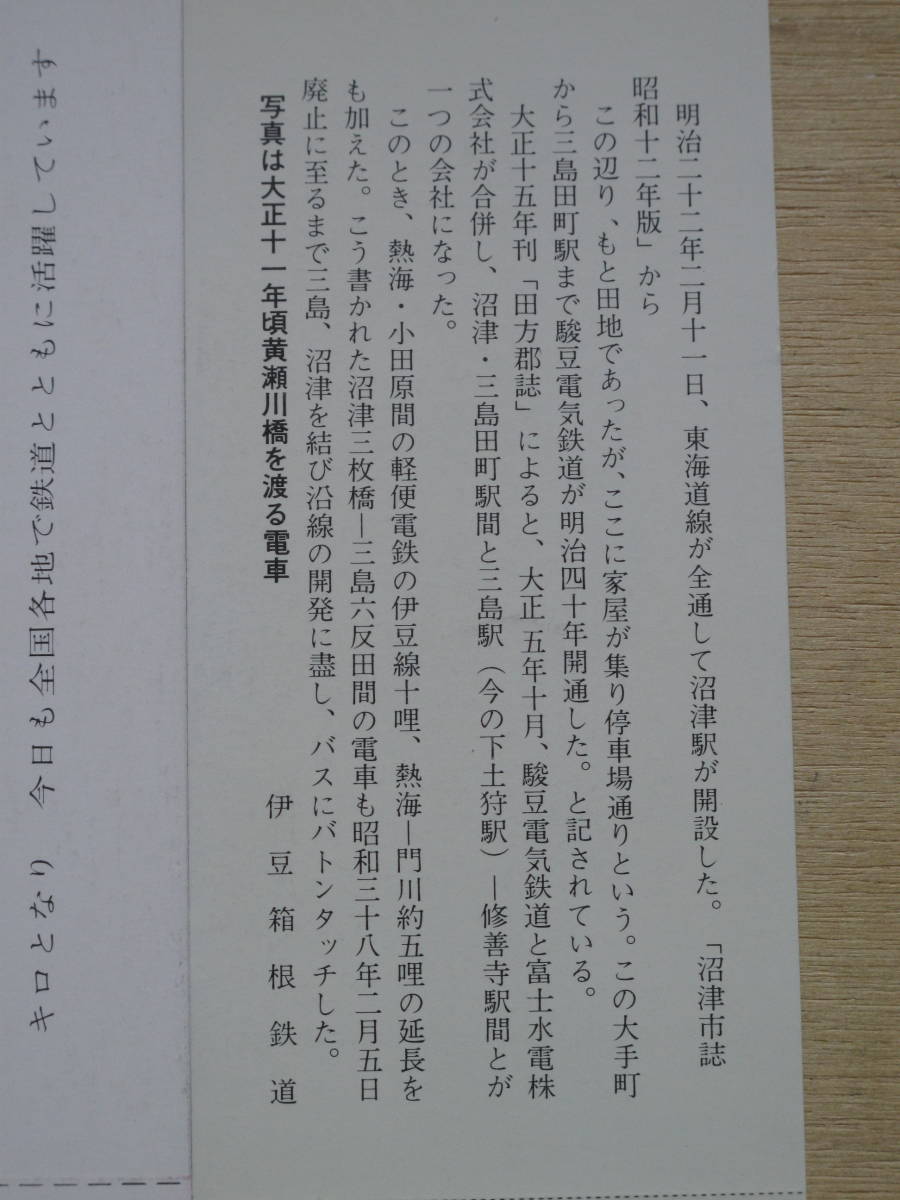 明治二十二年二月十一日、東海道線が全通して沼津駅が開設した。「沼津市誌
昭和十二年版」から
この辺り、もと田地であったが、ここに家屋が集り停車場通りという。この大手町
から三島田町駅まで駿豆電気鉄道が明治四十年開通した。と記されている。
大正十五年刊「田方郡誌」によると、大正五年十月、駿豆電気鉄道と富士水電株
式会社が合併し、沼津・三島田町駅間と三島駅（今の下土狩駅）―修善寺駅間とが
一つの会社になった。
このとき、熱海・小田原間の軽便電鉄の伊豆線十哩、熱海―門川約五哩の延長を
も加えた。こう書かれた沼津三枚橋―三島六反田間の電車も昭和三十八年二月五日
廃止に至るまで三島、沼津を結び沿線の開発に盡し、バスにバトンタッチした。
写真は大正十一年頃黄瀬川橋を渡る電車
伊豆箱根鉄道
キロとなり　今日も全国各地で鉄道とともに活躍しています